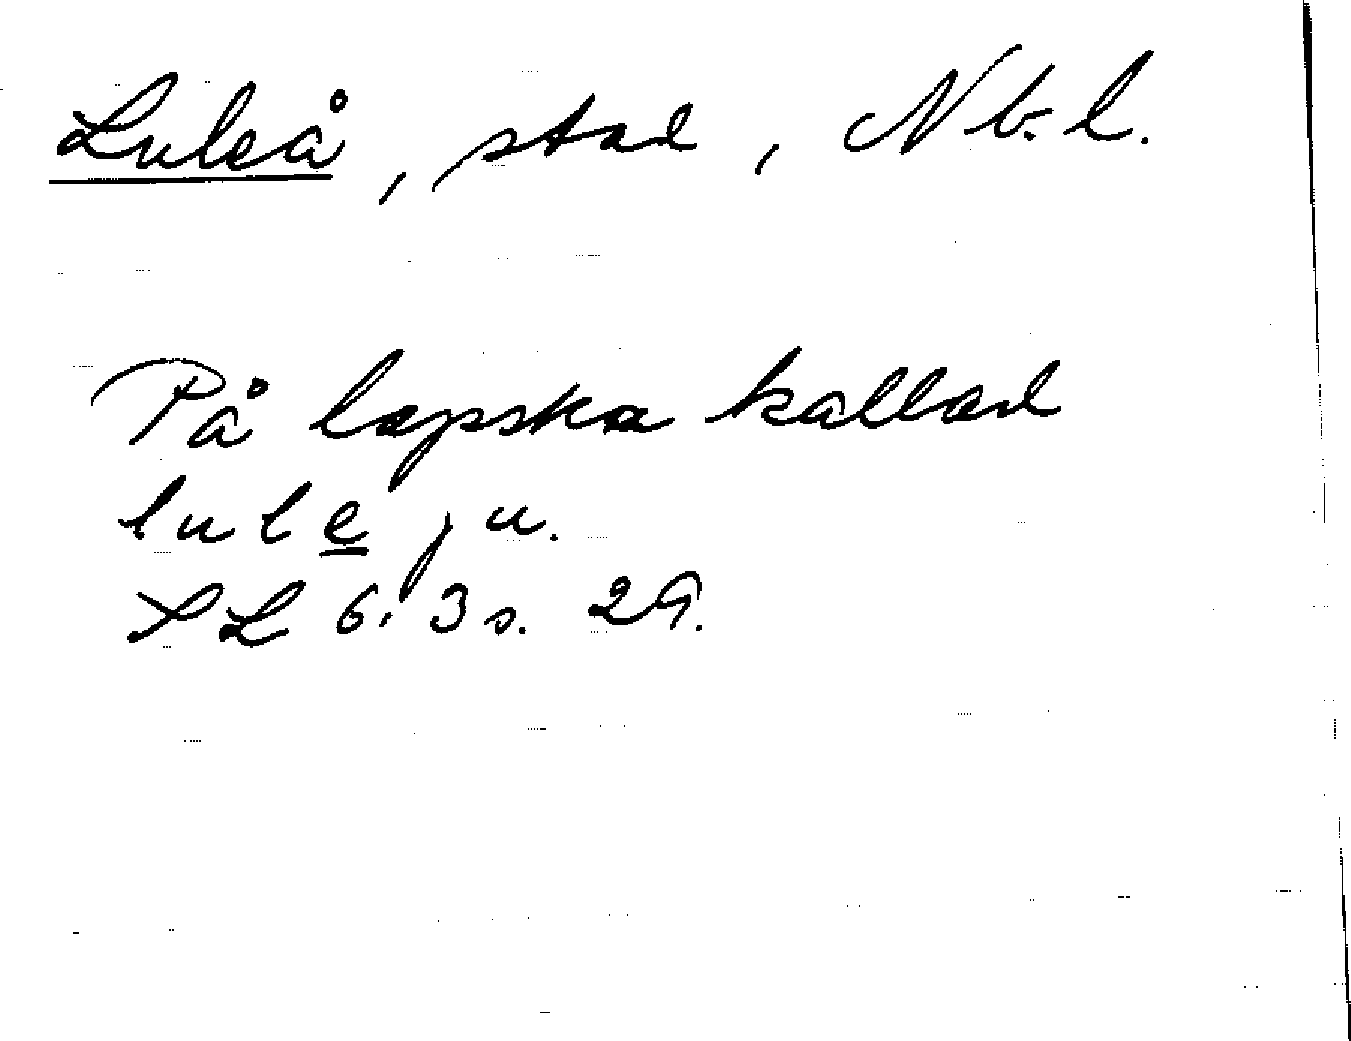 Luleå, stad, Nb. l.
På lapska kallad
lule̲ju.
SL 6:3 s. 29.